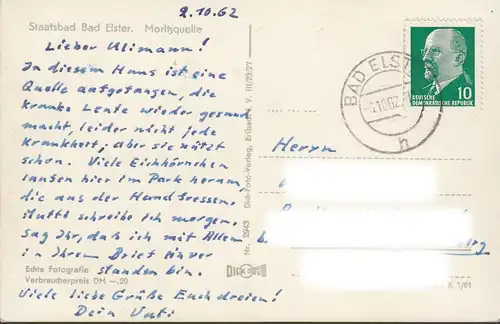 2.10.62
Staatsbad Bad Elster. Moritzquelle
Lieber Ulimann!
In diesem Haus ist eine
Quelle aufgefangen, die
kranke Leute wieder gesund
macht, leider nicht jede
Krankheit, aber sie nützt
schon. Viele Eichhörnchen
laufen hier im Park herum,
die aus der Hand fressen.
Mutti schreibe ich morgen.
Sag Ihr, daß ich mit Allem
in Ihrem Brief einver
standen bin.
Echte Fotografie
Verbraucherpreis DM —.20
Viele liebe Grüße Euch dreien!
Dein Vati
Nr. 2943 Dick-Foto-Verlag, Erlbach i. V. III/23/27
DICK
BAD ELST
10.62
h
DEUTSCHE
DEMOKRATISCHE REPUBLIK
10
Herrn
K 1/61